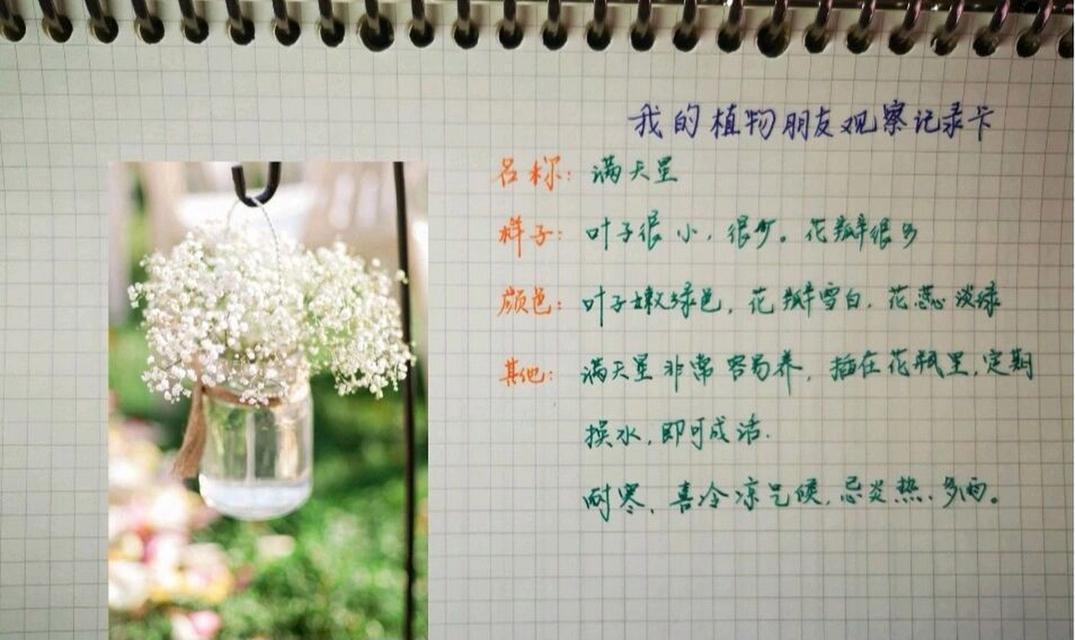 我的植物朋友观察记录卡
名称：满天星
样子：叶子很小，很少。花瓣很多
颜色：叶子嫩绿色，花瓣雪白，花蕊淡绿
其他：满天星非常容易养，插在花瓶里，定期
换水，即可成活。
耐寒，喜冷凉气候，忌炎热、多雨。